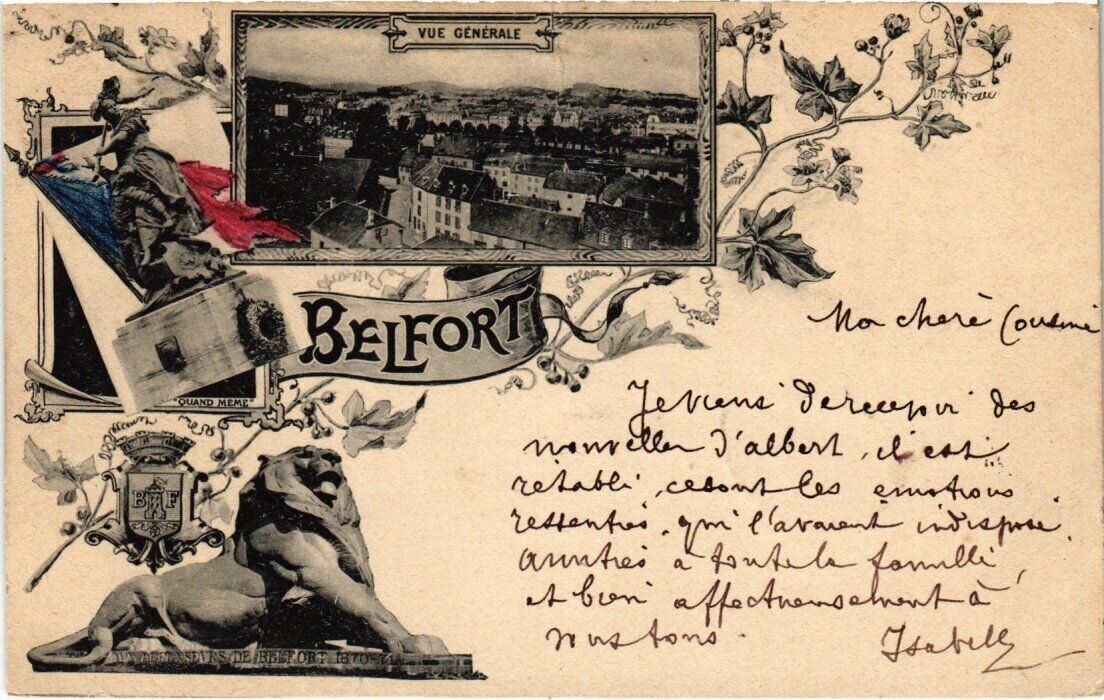 VUE GÉNÉRALE
BELFORT
"QUAND MÊME"
B F
AUX DEFENSEURS DE BELFORT 1870-71
Ma cherè Cousine
Je viens de recevoir des
nouvelles d'albert, il est
rétabli, ce sont les emotions
ressenties, qui l'avaient indisposé.
Amitiés a toute la famille,
et bien affectueusement à
vous tous.
Isabelle